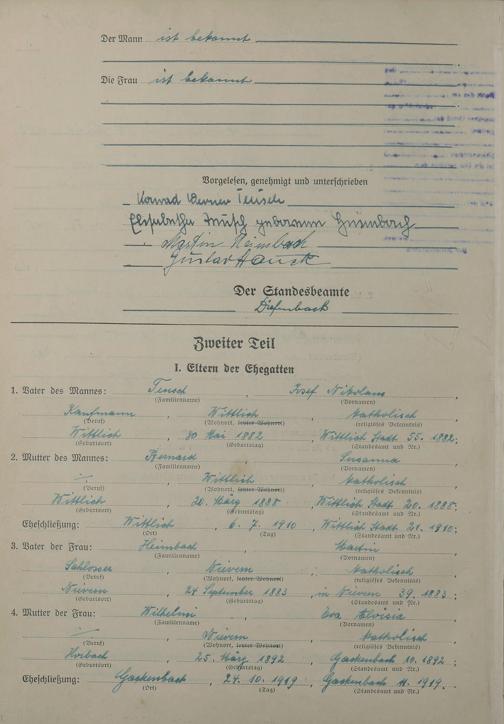 Der Mann ist bekannt
Die Frau ist bekannt
Vorgelesen, genehmigt und unterschrieben
Konrad Werner Teusch
Elisabetha Teusch geborene Heimbach
Martin Heimbach
Gustav Hauck
Der Standesbeamte
Diefenbach
Zweiter Teil
I. Eltern der Ehegatten
1. Vater des Mannes: Teusch, Josef Nikolaus,
(Familienname) (Vornamen)
Kaufmann, Wittlich, katholisch
(Beruf) (Wohnort, letzter Wohnort) (religiöses Bekenntnis)
Wittlich, 30 Mai 1882, Wittlich Stadt 55. 1882;
(Geburtsort) (Geburtstag) (Standesamt und Nr.)
2. Mutter des Mannes: Bernard, Susanna,
(Familienname) (Vornamen)
Wittlich, katholisch
(Beruf) (Wohnort, letzter Wohnort) (religiöses Bekenntnis)
Wittlich, 20. März 1888, Wittlich Stadt 20. 1888.
(Geburtsort) (Geburtstag) (Standesamt und Nr.)
Eheschließung: Wittlich, 6. 7. 1910, Wittlich Stadt 21. 1910;
(Ort) (Tag) (Standesamt und Nr.)
3. Vater der Frau: Heimbach, Martin,
(Familienname) (Vornamen)
Schlosser, Nievern, katholisch
(Beruf) (Wohnort, letzter Wohnort) (religiöses Bekenntnis)
Nievern, 24 September 1883, in Nievern 39. 1883;
(Geburtsort) (Geburtstag) (Standesamt und Nr.)
4. Mutter der Frau: Wilhelmi, Eva
(Familienname) (Vornamen)
Nievern, katholisch
(Beruf) (Wohnort, letzter Wohnort) (religiöses Bekenntnis)
Horbach, 25. März 1892, Gackenbach 10. 1892;
(Geburtsort) (Geburtstag) (Standesamt und Nr.)
Eheschließung: Gackenbach, 24. 10. 1919, Gackenbach 11. 1919.
(Ort) (Tag) (Standesamt und Nr.)